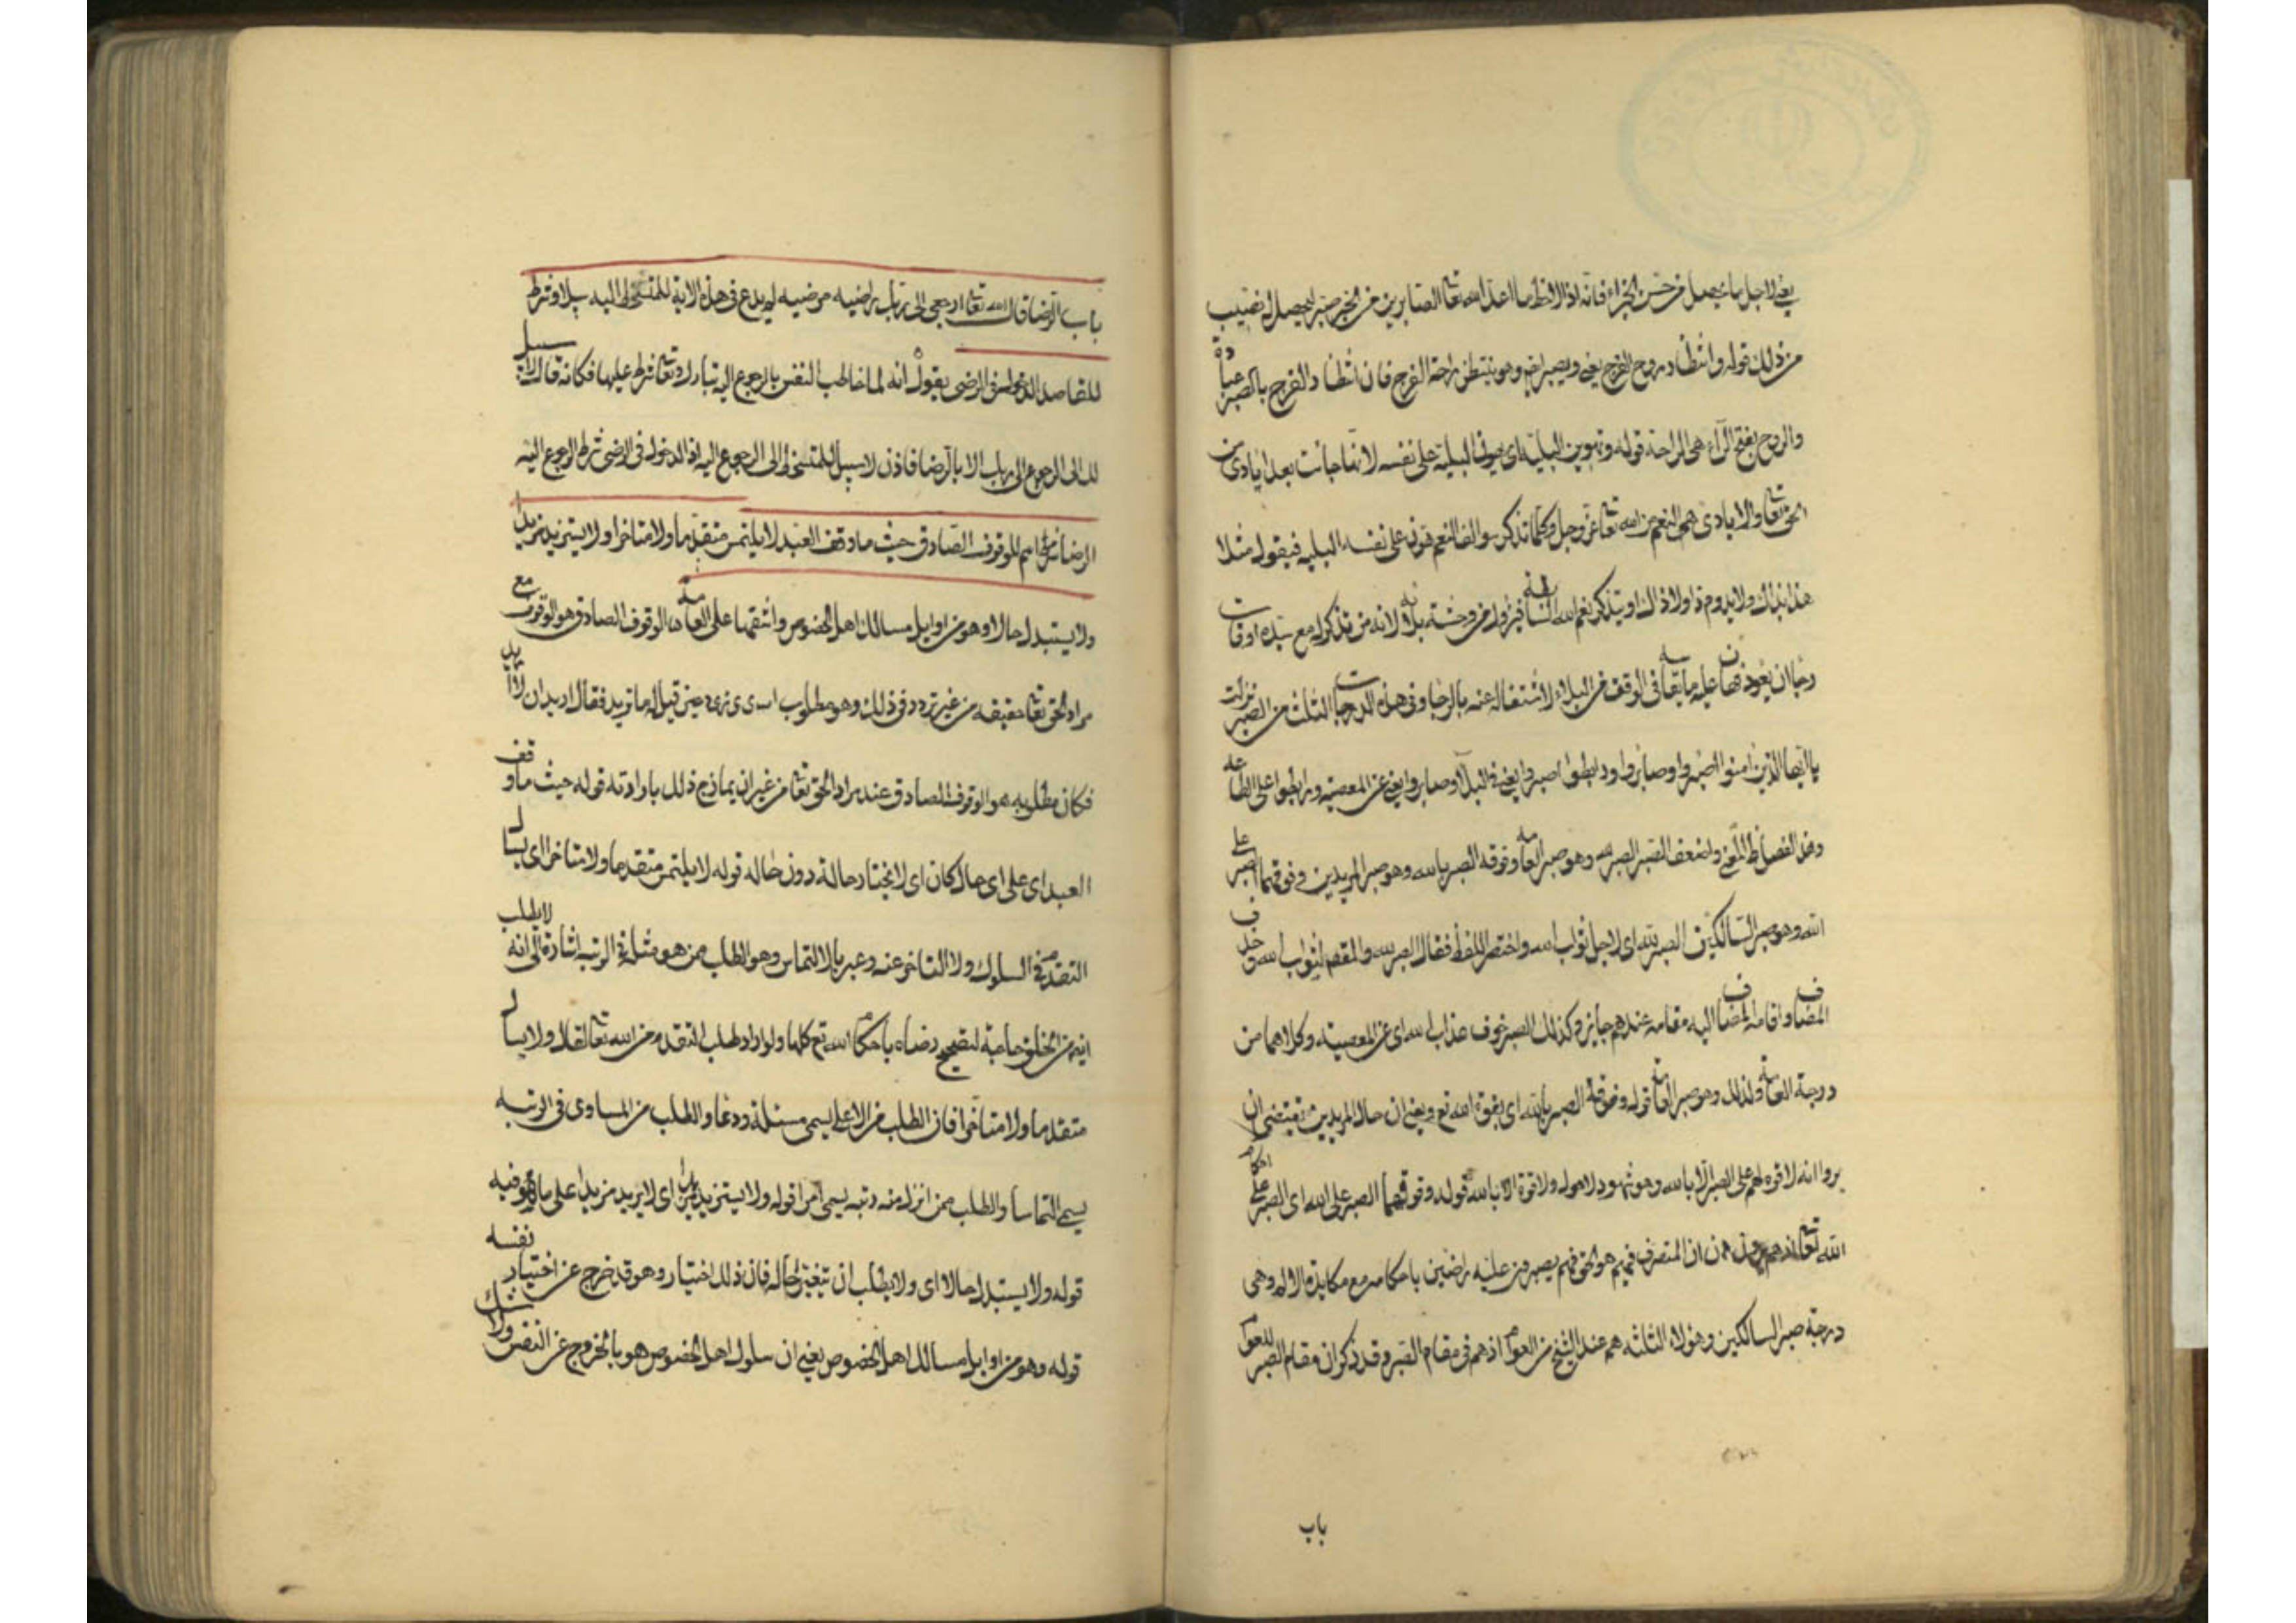 يعنى لاجل ما يحصل من حسن الجزاء فانه اذا لاحظ ما اعد الله تعا للصابرين من الخير صبر ليحصل له نصيب
من ذلك قوله وانتظار روح الفرج يعنى ويصبر ايضا وهو ينتظر راحة الفرج فان انتظار الفرج بالصبر عبادة
والروح بفتح الرآء هى الراحة قوله وتهوين البلية اى يهون البلية على نفسه لانها جائت بعد ايادى من
الحق تعا والايادى هى النعم من الله تعا عز وجل وكلما تذكر سوالف النعم هون على نفسه البليه فيقول مثلا
هذا بذاك ولا يدوم ذا ولا ذاك او يتذكر نعم الله السابقة فيزول من وحشة بلائه لانه من تذكر له مع سيده اوقات
رجا ان يعود فهان عليه ما يقاسيه فى الوقت من البلاء لاشتغاله عنه بالرجا وفى هذه الدرجات الثلث من الصبر نزلت
يا ايها الذين امنوا اصبروا وصابروا ورابطوا اصبروا يعنى فى البلآ وصابروا يعنى عن المعصية ورابطوا على الطاعه
وهذا لفظ ظاهر المعنى واضعف الصبر الصبر لله وهو صبر العامه وفوقه الصبر بالله وهو صبر المريدين وفوقهما الصبر على
الله وهو صبر السالكين الصبر لله اى لاجل ثواب الله واختصر اللفظ فقال الصبر لله والمقصد لثواب الله حذف
المضاف واقامه المضاف اليه مقامه عندهم جايز وكذلك الصبر خوف عذاب الله اى عن المعصية وكلاهما من
درجة العامة ولذلك وهو صبر العامة قوله وفوقه الصبر بالله اى بقوة الله تع ويعنى ان حال المريدين تقتضى ان
يروا انه لا قوه لهم على الصبر الا بالله وهو شهود لا حول ولا قوة الا بالله قوله وفوقهما الصبر على الله اى الصبر على احكام
الله تعا انهم يرون ان المتصرف فيهم هو الحق فهم يصبرون عليه راضين باحكامه مع مكابدة الالم وهى
درجة صبر السالكين وهؤلاء الثلثه هم عند الشيخ من العوام اذ هم فى مقام الصبر وقد ذكر ان مقام الصبر للعوام
باب
باب الرضا قال الله تعا ارجعى الى ربك راضيه مرضيه لم يدع فى هذه الاية للمتسخط اليه سبيلا وشرط
للقاصد الدخول فى الرضى يقول انه لما خاطب النفس بالرجوع اليه تبارك وتعا شرط عليها فكانه قال لا سبيل
لك الى الرجوع الى ربك الا بالرضا فاذن لا سبيل للمتسخط الى الرجوع اليه اذ الدخول فى الرضى شرط الرجوع اليه
الرضا اسم للوقوف الصادق حيث ما وقف العبد لا يلتمس متقدما ولا متاخرا ولا يستزيد مزيدا
ولا يستبدل حالا وهو من اوايل مسالك اهل الخصوص واشقها على العامه الوقوف الصادق هو الوقوف مع
مراد الحق تعا حقيقه من غير تردد فى ذلك وهو مطلوب ابى يزيد حين قيل له ما تريد فقال اريد ان لا اريد
فكان مطلوبه هو الوقوف الصادق عند مراد الحق تعا من غير ان يمازج ذلك بارادته قوله حيث ما وقف
العبد اى على اى حال كان اى لا يختار حالة دون حاله قوله لا يلتمس متقدما ولا متاخرا اى يسال
التقدم فى السلوك ولا التاخر عنه وعبر بالالتماس وهو الطلب ممن هو مثله فى الرتبه اشارة الى انه لا يطلب
من الخلق حاجة لتصحيح رضاه باحكام الله تع كلها ولو اراد طلب التقدم من الله تعا لقال ولا يسال
متقدما ولا متاخرا فان الطلب من الاعلى يسمى مسئلة ودعا والطلب من المساوى فى الرتبه
يسمى التماسا والطلب ممن انزل منه رتبه يسمى امرا قوله ولا يستزيد مزيدا اى لا يريد مزيدا على ما هو فيه
قوله ولا يستبدل حالا اى ولا يطلب ان تتغير حاله فان ذلك اختيار وهو قد خرج عن اختيار نفسه
قوله وهو من اوايل مسالك اهل الخصوص يعنى ان سلوك اهل الخصوص هو بالخروج عن النفس ولا شك